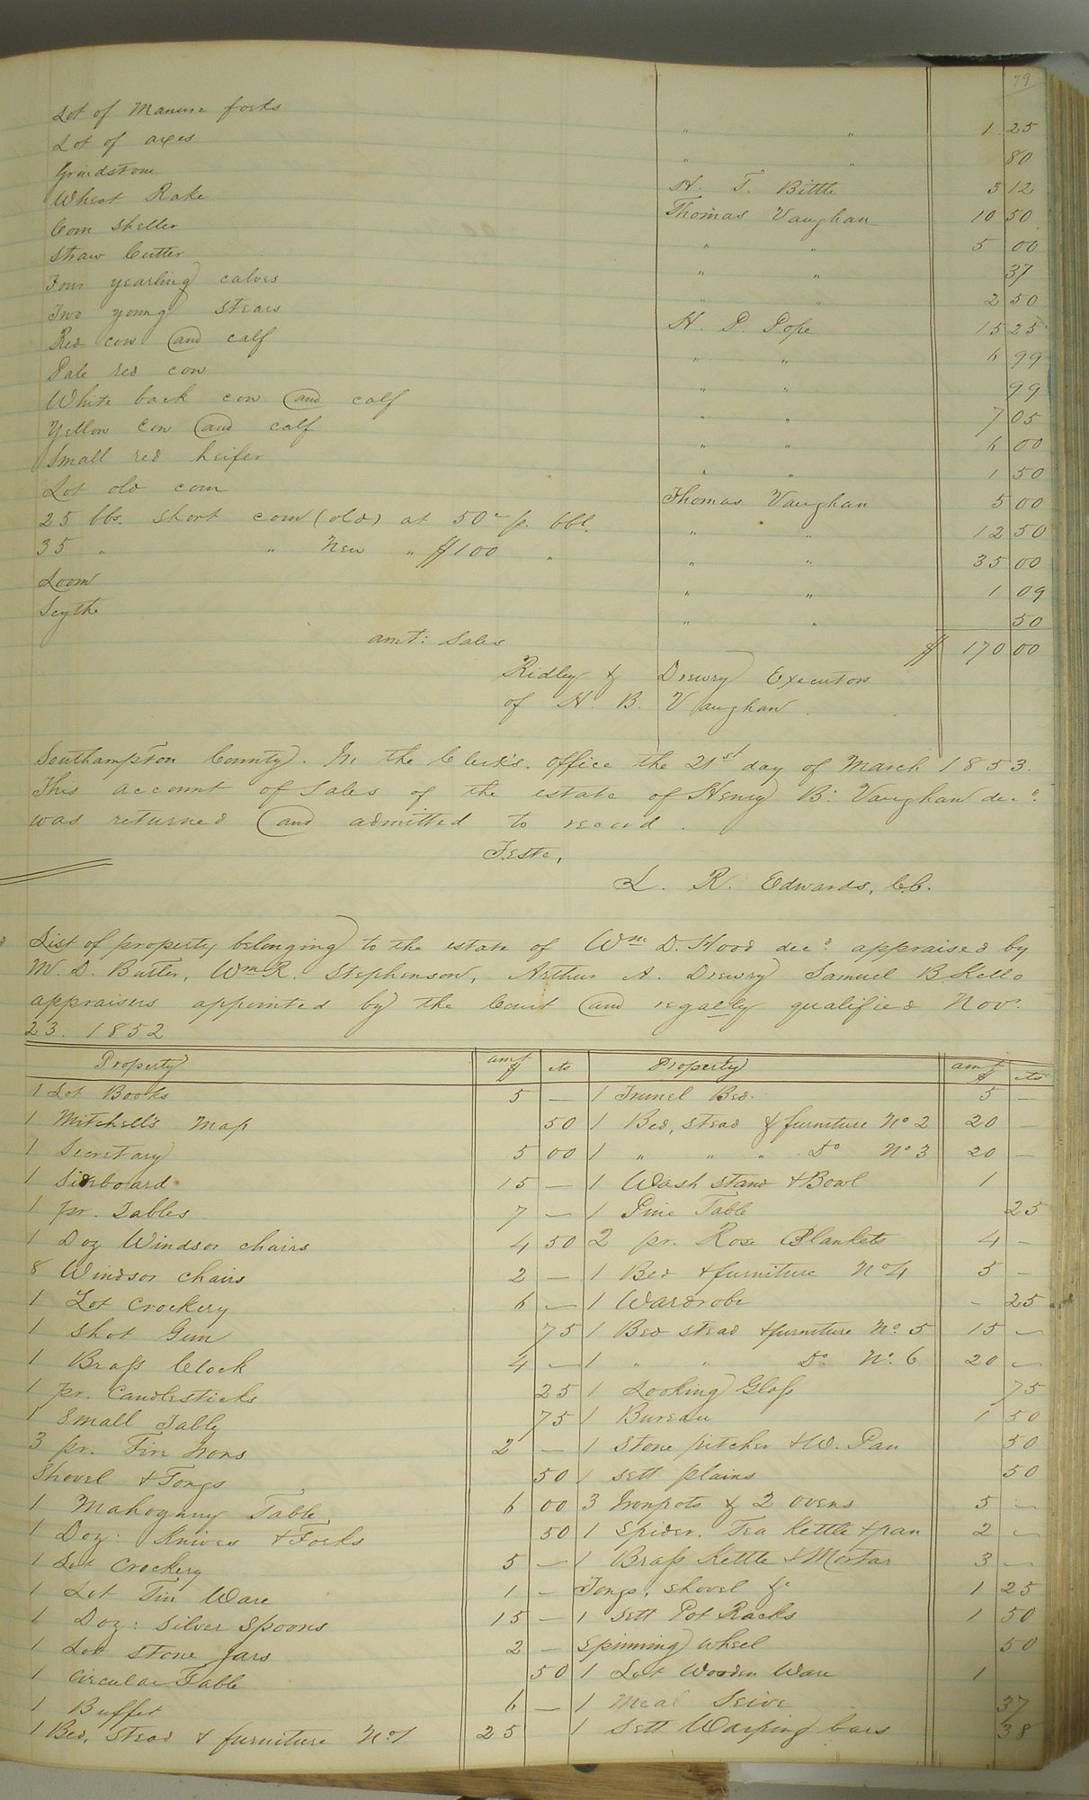 79
Lot of Manure forks " " 1 25
Lot of axes " " 80
Grindstone H. T. Bittle 3 12
Wheat Rake Thomas Vaughan 10 50
Corn Sheller " " 5 00
Straw Cutter " " 37
Four yearling calves " " 2 50
Two young steers H. P. Pope 15 25
Red cow and calf " " 6 99
Pale red cow " " 99
White back cow and calf " " 7 05
Yellow Cow and calf " " 6 00
Small red heifer " " 1 50
Lot old corn Thomas Vaughan 5 00
25 bbs. short corn (old) at 50c p. bbl. " " 12 50
35 " " New " $100 " " " 35 00
Loom " " 1 09
Scythe " " 50
amt: Sales $ 170 00
Ridley & Drewry Executors
of H. B. Vaughan
Southampton County. In the Clerk's office the 21st day of March 1853.
This account of Sales of the estate of Henry B. Vaughan decd.
was returned and admitted to record.
Teste,
L. R. Edwards, C.C.
List of property belonging to the estate of Wm D. Hood decd. appraised by
W. D. Butler, Wm R. Stephenson, Arthur A. Drewry Samuel B. Kello
appraisers appointed by the Court and regally qualified Nov.
23. 1852
Property amt $ cts Property amt $ cts
1 Lot Books 5 — 1 Trunel Bed. 5 —
1 Mitchell's Map 50 1 Bed, stead & furniture No 2 20 —
1 Secretary 5 00 1 " " " Do No 3 20 —
1 Sideboard 15 — 1 Wash stand & Bowl 1
1 pr. Tables 7 — 1 Pine Table 25
1 Doz Windsor chairs 4 50 2 pr. Rose Blankets 4 —
8 Windsor chairs 2 — 1 Bed & furniture No 4 5 —
1 Lot Crockery 6 — 1 Wardrobe - 25
1 Shot Gun 75 1 Bed stead & furniture No. 5 15 —
1 Brass Clock 4 — 1 " " Do No. 6 20 —
1 pr. Candlesticks 25 1 Looking Glass 75
1 Small Table 75 1 Bureau 1 50
3 pr. Fire Irons 2 — 1 Stone pitcher & W. Pan 50
Shovel & Tongs 50 1 Sett plains 50
1 Mahogany Table 6 00 3 Ironpots & 2 ovens 5 —
1 Doz: Knives & Forks 50 1 Spider, Tea Kettle & pan 2 —
1 Lot Crockery 5 — 1 Brass Kettle & Mortar 3 —
1 Lot Tin Ware 1 — Tongs, shovel &c 1 25
1 Doz: Silver Spoons 15 — 1 Sett Pot Racks 1 50
1 Lot Stone Jars 2 — Spinning wheel 50
1 Circular Table 50 1 Lot Wooden Ware 1
1 Buffet 6 — 1 Meal Seive 37
1 Bed, Stead & furniture No 1 25 1 Sett Warping bars 38